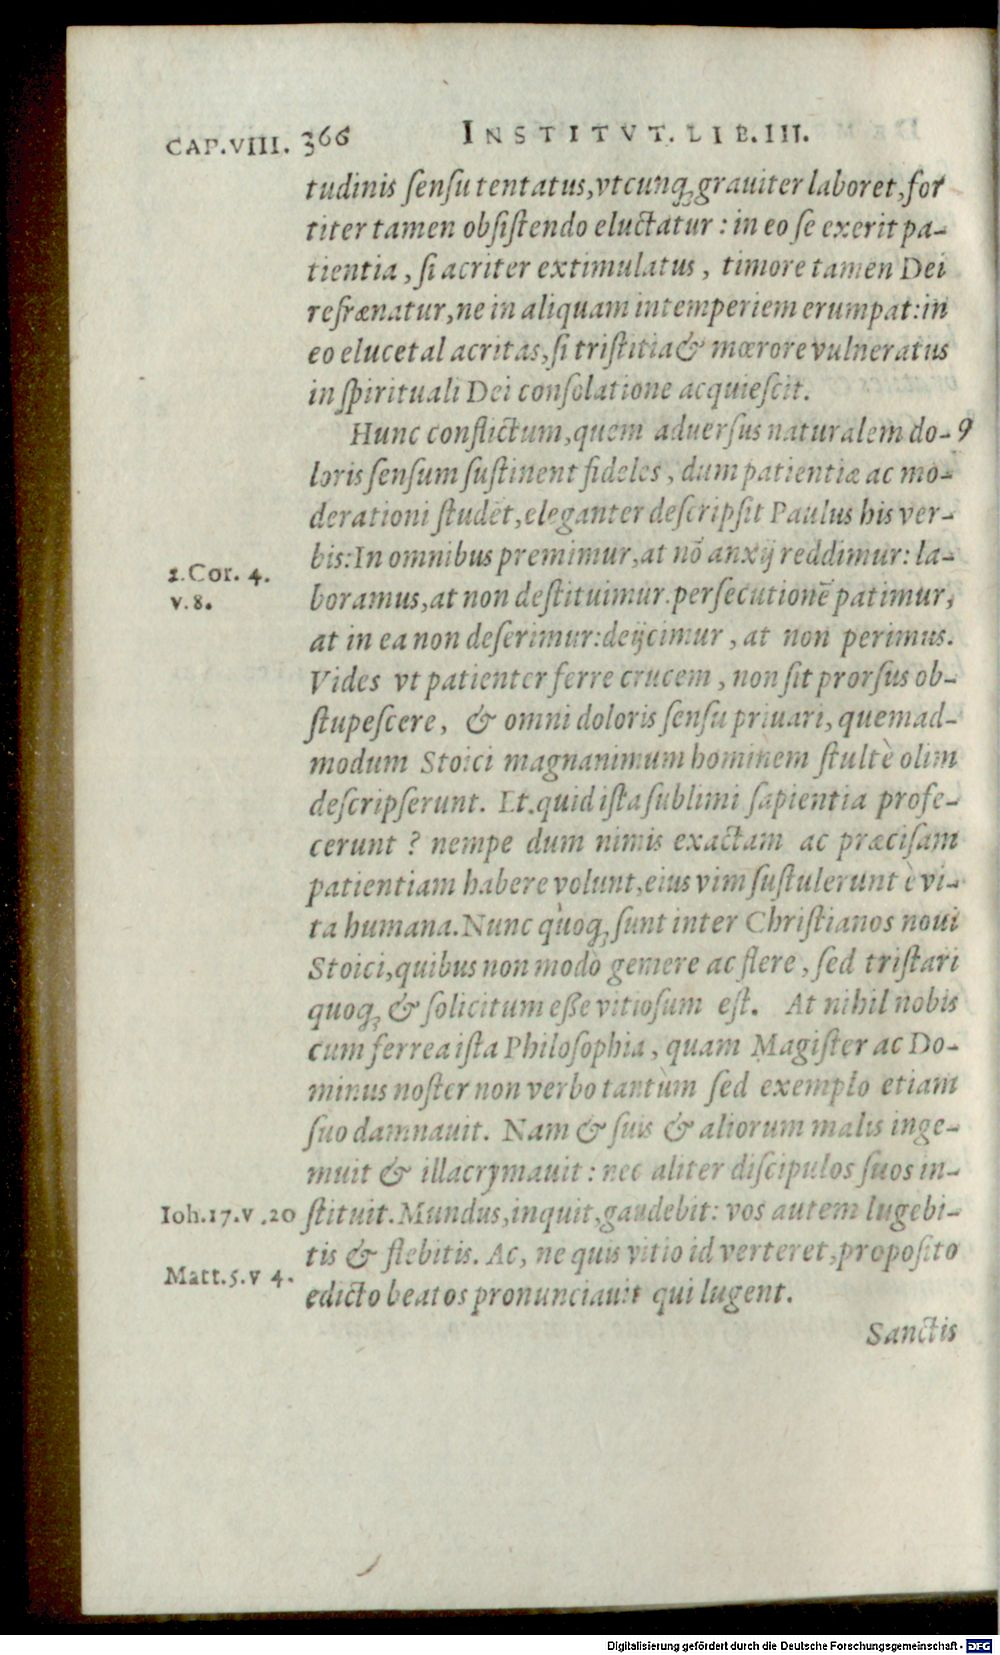 CAP.VIII. 366 INSTITVT. LIB.III.
tudinis ſenſu tentatus,vtcunq; grauiter laboret,for
titer tamen obſiſtendo eluctatur : in eo ſe exerit pa-
tientia, ſi acriter extimulatus, timore tamen Dei
refrænatur,ne in aliquam intemperiem erumpat:in
eo elucet alacritas,ſi triſtitia & mœrore vulneratus
in ſpirituali Dei conſolatione acquieſcit.
Hunc conflictum,quem aduerſus naturalem do- 9
loris ſenſum ſuſtinent fideles, dum patientiæ ac mo-
derationi ſtudēt,eleganter deſcripſit Paulus his ver-
bis:In omnibus premimur,at nō anxij reddimur: la-
2.Cor. 4.
v.8.
boramus,at non deſtituimur.perſecutionē patimur,
at in ea non deſerimur:deijcimur, at non perimus.
Vides vt patienter ferre crucem, non ſit prorſus ob-
ſtupeſcere, & omni doloris ſenſu priuari, quemad-
modum Stoici magnanimum hominem ſtultè olim
deſcripſerunt. Et quid iſta ſublimi ſapientia profe-
cerunt ? nempe dum nimis exactam ac præciſam
patientiam habere volunt,eius vim ſuſtulerunt è vi-
ta humana.Nunc quoq; ſunt inter Chriſtianos noui
Stoici,quibus non modò gemere ac flere, ſed triſtari
quoq; & ſolicitum eſſe vitioſum eſt. At nihil nobis
cum ferrea iſta Philoſophia, quam Magiſter ac Do-
minus noſter non verbo tantùm ſed exemplo etiam
ſuo damnauit. Nam & ſuis & aliorum malis inge-
muit & illacrymauit : nec aliter diſcipulos ſuos in-
Ioh.17.v.20 ſtituit. Mundus,inquit,gaudebit: vos autem lugebi-
tis & flebitis. Ac, ne quis vitio id verteret,propoſito
Matt.5.v 4. edicto beatos pronunciauit qui lugent.
Sanctis
Digitalisierung gefördert durch die Deutsche Forschungsgemeinschaft - DFG